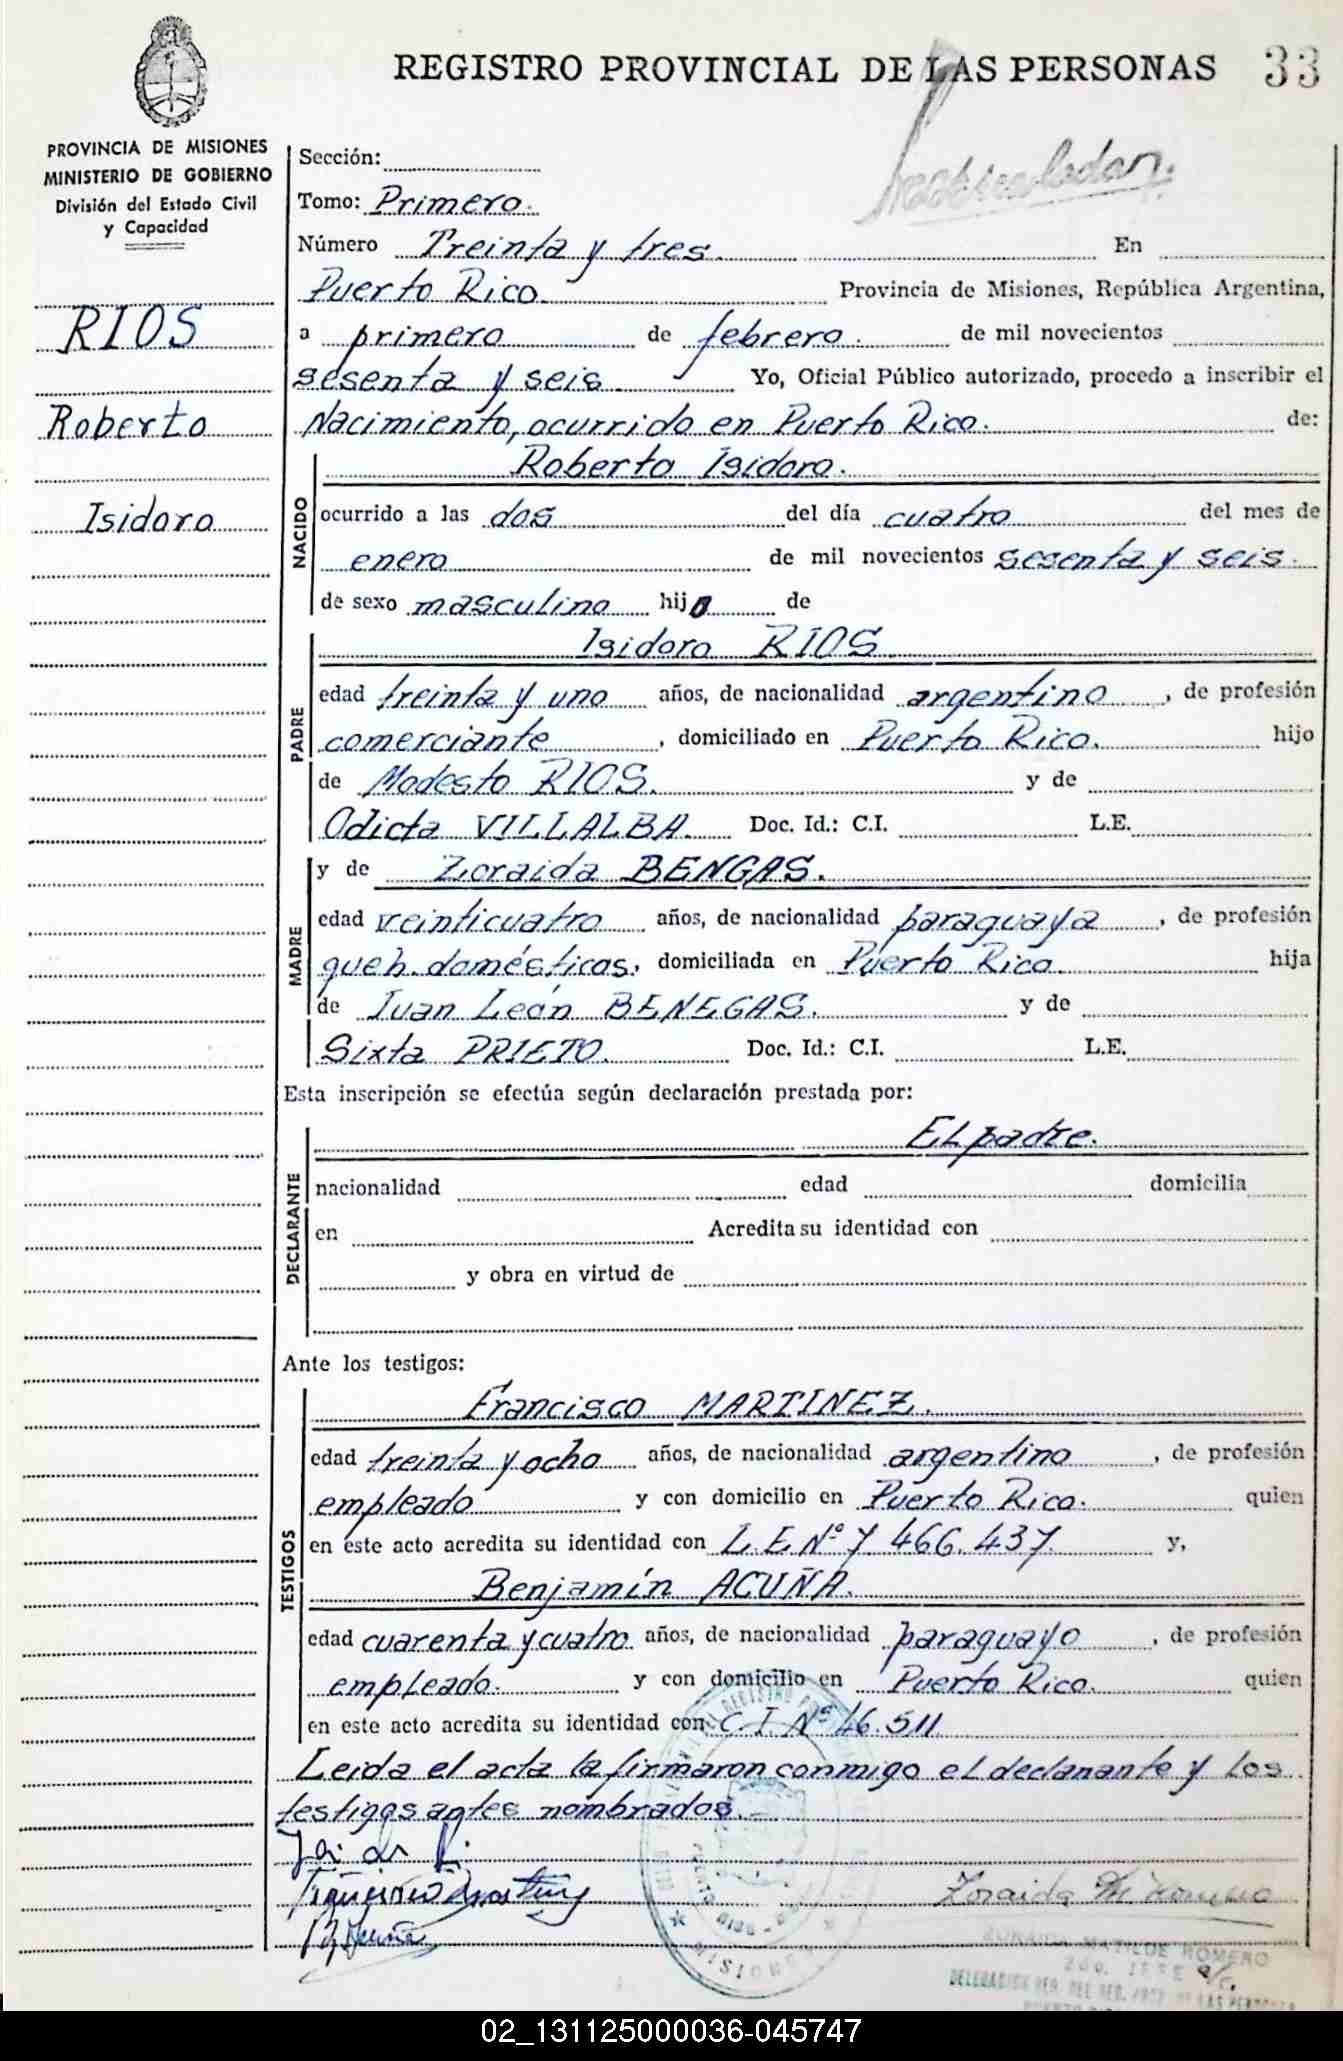 REGISTRO PROVINCIAL DE LAS PERSONAS 33
PROVINCIA DE MISIONES
MINISTERIO DE GOBIERNO
División del Estado Civil
y Capacidad
RIOS
Roberto
Isidoro
Sección:
Tomo: Primero.
Número Treinta y tres. En
Puerto Rico. Provincia de Misiones, República Argentina,
a primero de febrero. de mil novecientos
sesenta y seis Yo, Oficial Público autorizado, procedo a inscribir el
Nacimiento, ocurrido en Puerto Rico. de:
Roberto Isidoro.
NACIDO
ocurrido a las dos del día cuatro del mes de
enero de mil novecientos sesenta y seis.
de sexo masculino hijo de
Isidoro RIOS
PADRE
edad treinta y uno años, de nacionalidad argentino, de profesión
comerciante, domiciliado en Puerto Rico. hijo
de Modesto RIOS. y de
Odicta VILLALBA. Doc. Id.: C.I. L.E.
MADRE
y de Zoraida BENGAS.
edad veinticuatro años, de nacionalidad paraguaya, de profesión
queh. domésticos, domiciliada en Puerto Rico. hija
de Juan León BENEGAS. y de
Sixta PRIETO. Doc. Id.: C.I. L.E.
Esta inscripción se efectúa según declaración prestada por:
El padre.
DECLARANTE
nacionalidad edad domicilia
en Acredita su identidad con
y obra en virtud de
Ante los testigos:
TESTIGOS
Francisco MARTINEZ.
edad treinta y ocho años, de nacionalidad argentino, de profesión
empleado y con domicilio en Puerto Rico. quien
en este acto acredita su identidad con L.E. Nº 7 466.437. y,
Benjamín ACUÑA.
edad cuarenta y cuatro años, de nacionalidad paraguayo, de profesión
empleado. y con domicilio en Puerto Rico. quien
en este acto acredita su identidad con C.I. Nº 46.511
Leida el acta la firmaron conmigo el declanante y los
testigos antes nombrados.
Zoraida M Romero
ZORAIDA MATILDE ROMERO
MISIONES
02_131125000036-045747